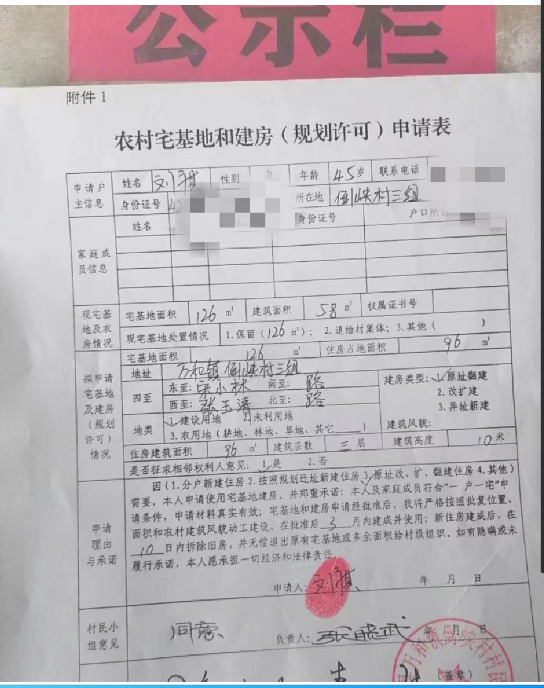 公示栏
附件1
农村宅基地和建房（规划许可）申请表
申请户主信息 姓名 性别 年龄 45岁 联系电话
身份证号 所在地
家庭成员信息 姓名 身份证号 户口所
现宅基地及农房情况 宅基地面积 126 m² 建筑面积 58 m² 权属证书号
现宅基地处置情况 1.保留（126 m²）；2.退给村集体；3.其他（ ）
拟申请宅基地及建房（规划许可）情况 宅基地面积 126 m² 住房占地面积 96 m²
地址 万和镇 村三组
四至 东至： 小林 南至：路 建房类型：1.原址翻建
西至：张玉清 北至：路 2.改扩建
3.异址新建
地类 1.建设用地 2.未利用地
3.农用地（耕地、林地、草地、其它 ） 建筑风貌：
住房建筑面积 96 m² 建筑层数 层 建筑高度 10米
是否征求相邻权利人意见：1.是 2.否
申请理由与承诺 因（1.分户新建住房 2.按照规划迁址新建住房 3.原址改、扩、翻建住房 4.其他）
需要，本人申请使用宅基地建房，并郑重承诺：本人及家庭成员符合“一户一宅”申
请条件，申请材料真实有效；宅基地和建房申请经批准后，我将严格按照批复位置、
面积和农村建筑风貌动工建设，在批准后 3 月内建成并使用；新住房建成后，在
10 日内拆除旧房，并无偿退出原有宅基地或多余面积给村级组织，如有隐瞒或未
履行承诺，本人愿承担一切经济和法律责任。
申请人： 年 月 日
村民小组意见 同意 负责人：张晓武 年 月 日
（盖章）